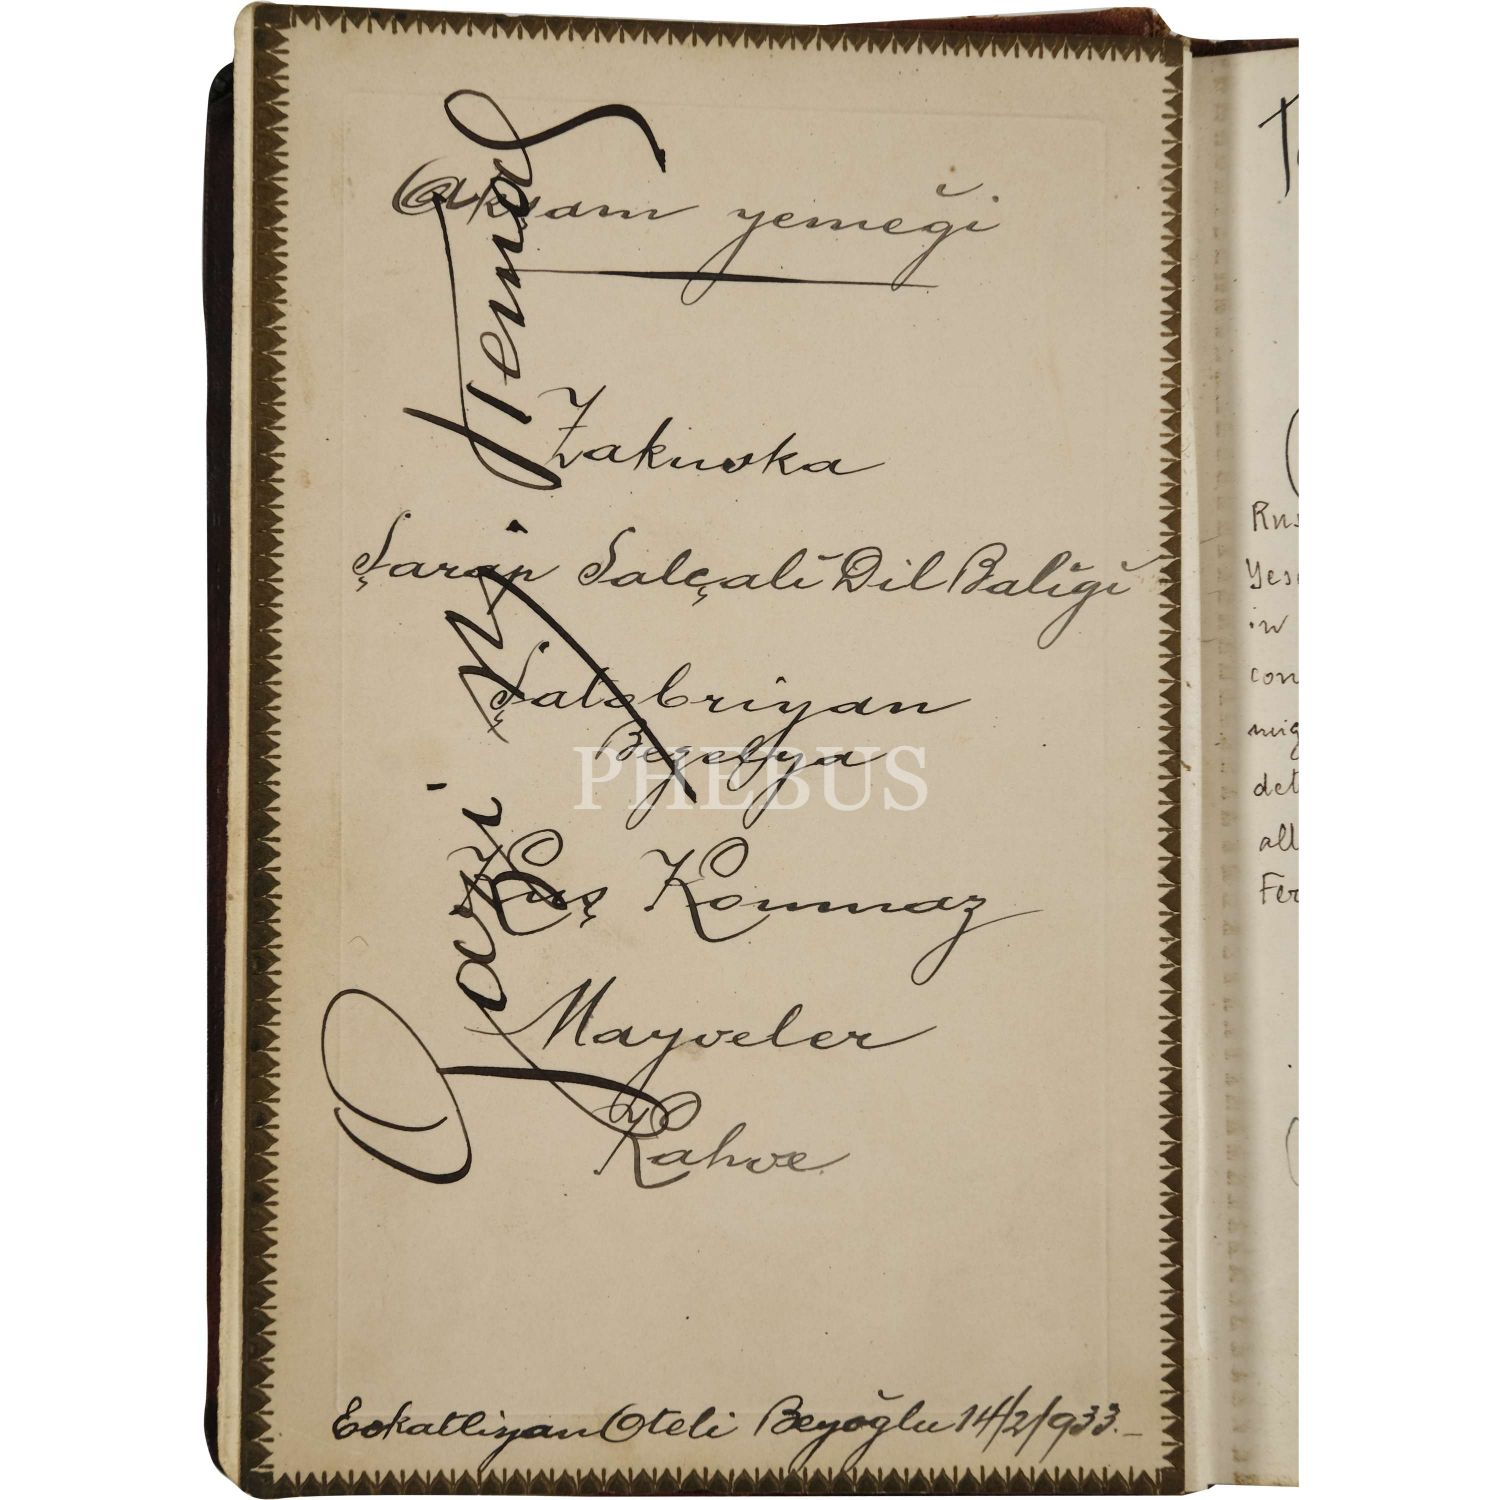 Akşam yemeği
Zakuska
Şarap Salçali Dil Baliği
Şatobriyan
Bezelya
Kuş Konmaz
Mayveler
Kahve
Eokatliyan Oteli Beyoğlu 14/2/933.-
Gazi M. Kemal
PHEBUS
Rus
Yes
in
con
mig
det
all
Fer